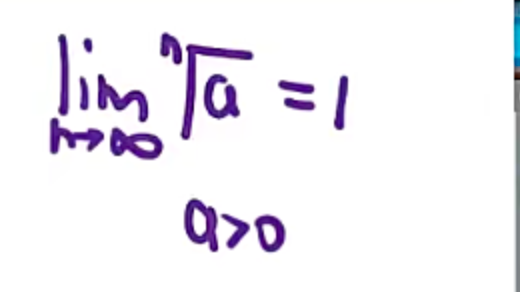 lim n→∞ ⁿ√a = 1
a>0